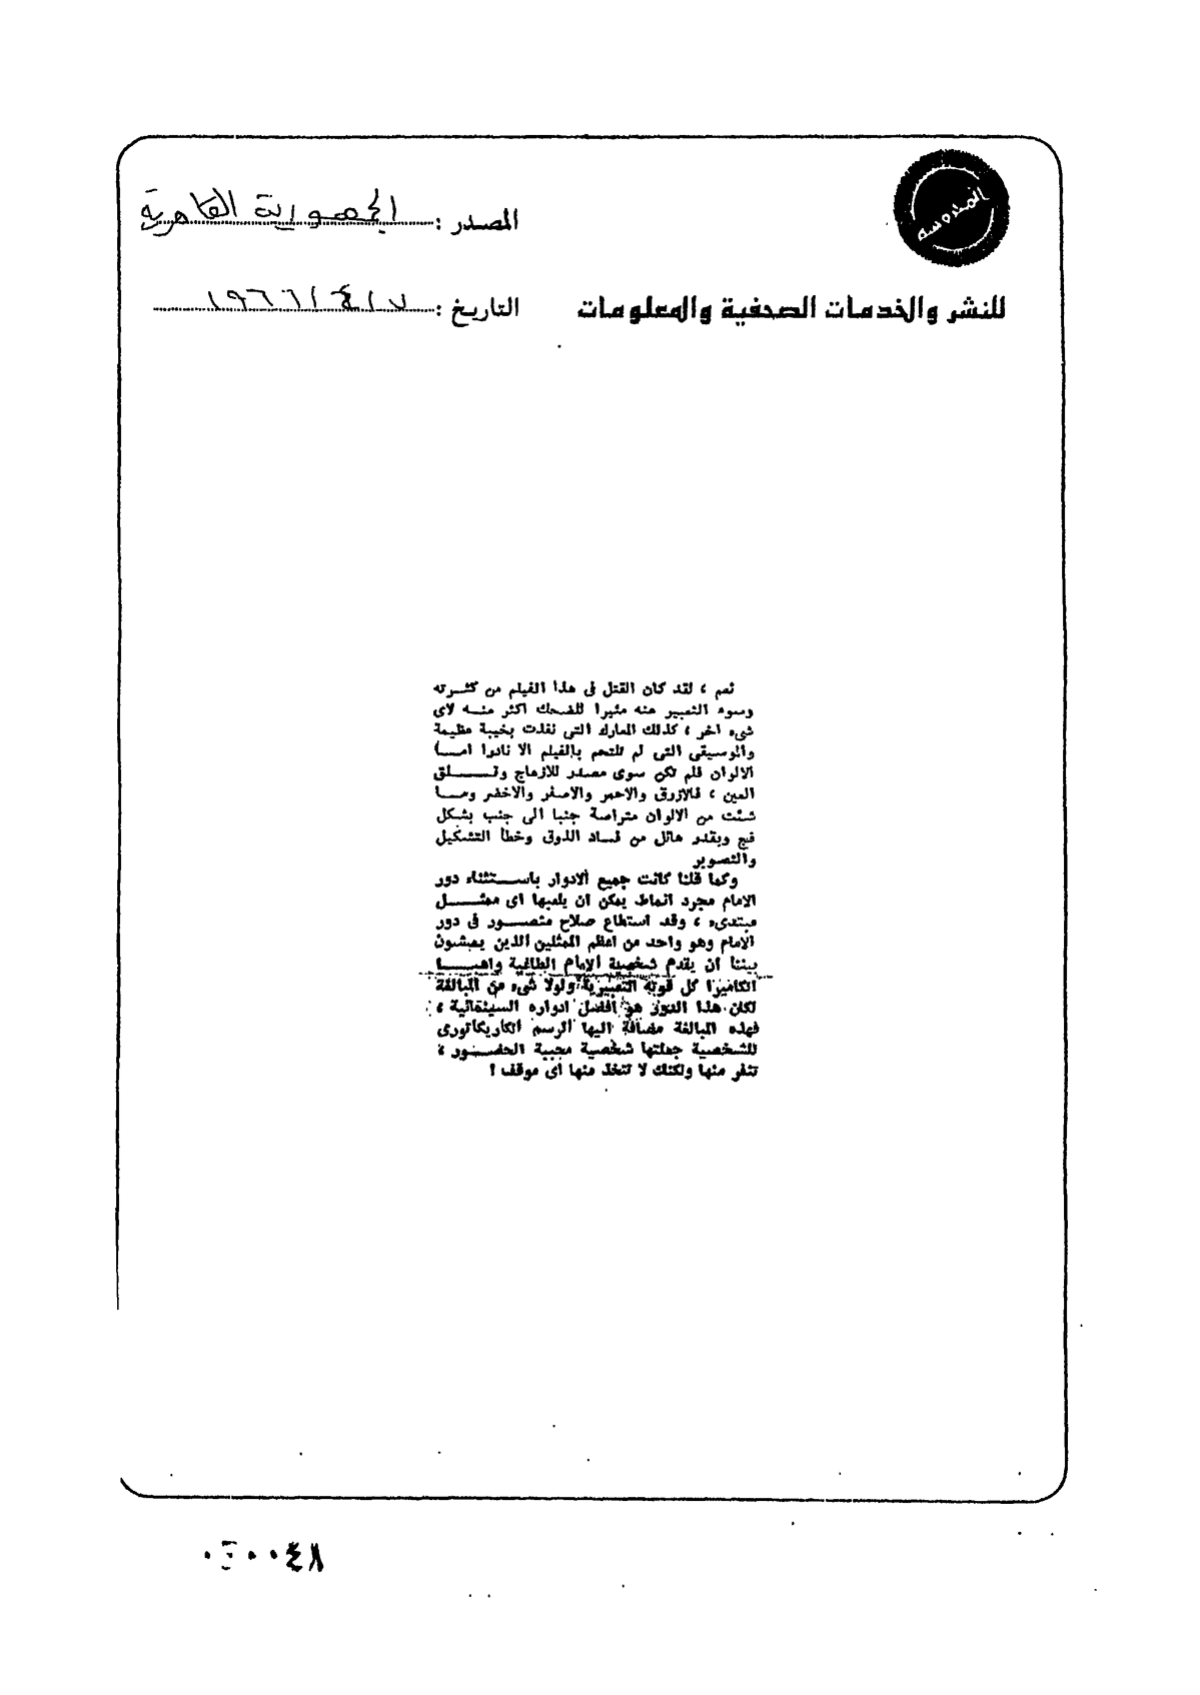 المدوسه
المصدر : الجمهورية القاهرية
للنشر والخدمات الصحفية والمعلومات
التاريخ : ٧ / ٤ / ١٩٦٦
ثم ، لقد كان القتل فى هذا الفيلم من كثرته
وسوء التعبير عنه مثيرا للضحك اكثر منه لاى
شىء اخر ، كذلك المعارك التى نفذت بخيبة عظيمة
والموسيقى التى لم تلتحم بالفيلم الا نادرا امـا
الالوان فلم تكن سوى مصدر للازعاج وقلق
العين ، فالازرق والاحمر والاصفر والاخضر وما
شئت من الالوان متراصة جنبا الى جنب بشكل
فج وبقدر هائل من فساد الذوق وخطأ التشكيل
والتصوير
وكما قلنا كانت جميع الادوار باستثناء دور
الامام مجرد انماط يمكن ان يلعبها اى ممثل
مبتدىء ، وقد استطاع صلاح منصور فى دور
الامام وهو واحد من اعظم الممثلين الذين يعيشون
بيننا ان يقدم شخصية الامام الطاغية واهبا
الكاميرا كل قوته التعبيرية ولولا شىء من المبالغة
لكان هذا الدور هو افضل ادواره السينمائية ،
فهذه المبالغة مضافا اليها الرسم الكاريكاتورى
للشخصية جعلتها شخصية محببة الحضور ،
تنفر منها ولكنك لا تتخذ منها اى موقف !